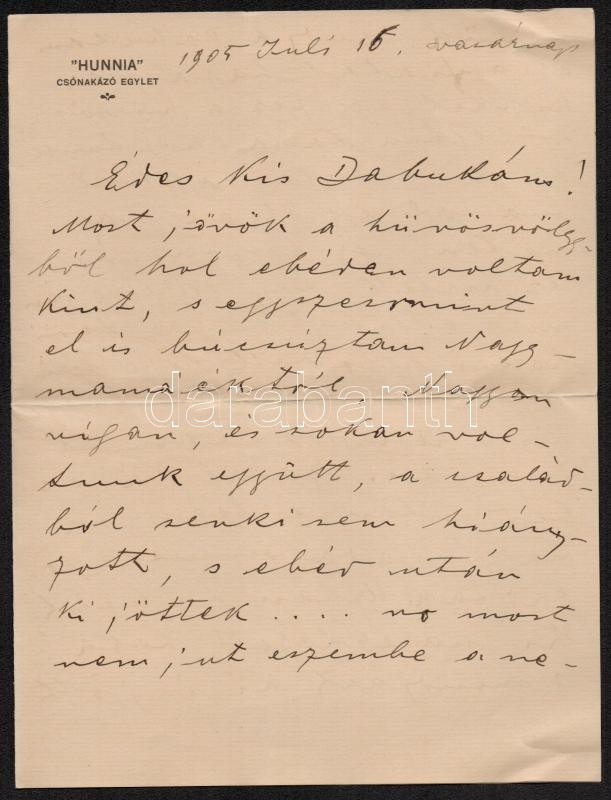 "HUNNIA"
CSÓNAKÁZÓ EGYLET
1905 Juli 16. vasárnap
Édes Kis Dabukám!
Most jövök a hüvösvölgy-
ből hol ebéden voltam
kint, s egyszersmint
el is búcsúztam Nagy-
mamáéktól. Nagyon
vígan, és sokan vol-
tunk együtt, a család-
ból senki sem hiány-
zott, s ebéd után
ki jöttek .... no most
nem jut eszembe a ne-
darabanth